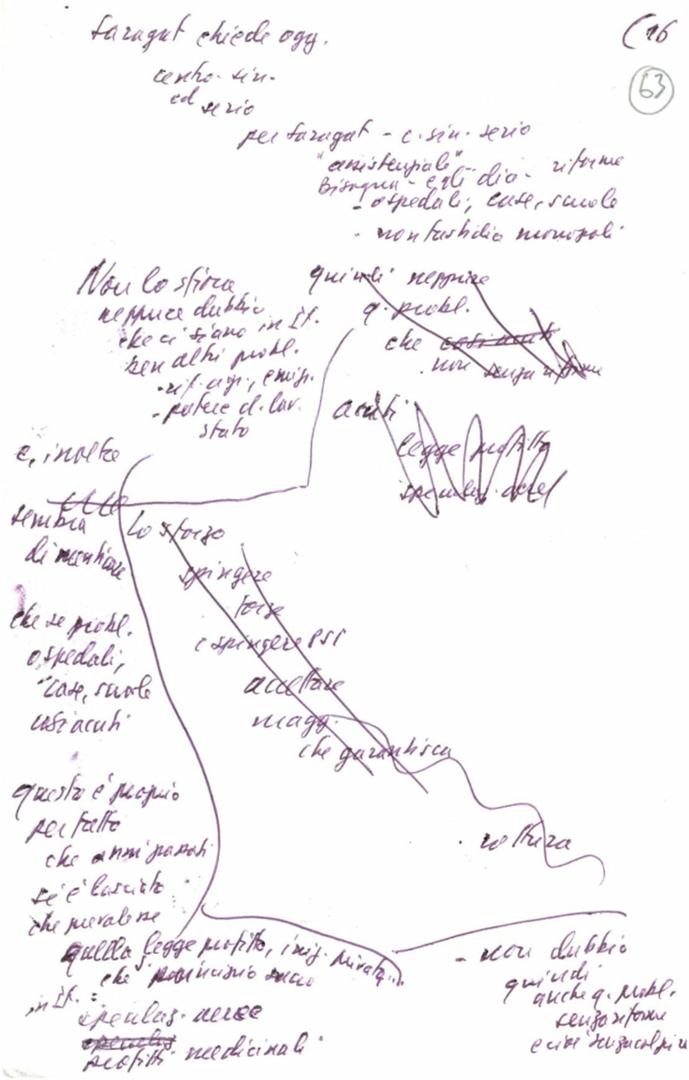 Saragat chiede ogg.
(16
63
centro-sin.
ed serio
per Saragat - c. sin. serio
"assistenziale"
Bisogna - egli dice - riforme
- ospedali, case, scuole
- non fastidio monopoli
Non lo sfiora
neppure dubbio
che ci siano in It.
ben altri probl.
- rif. agr., emig.
- potere d. lav.
stato
quindi neppure
q. probl.
che così acuti
non senza riforme
acuti
legge profitto
speculaz. aree
e, inoltre
sembra
dimenticare
che se probl.
ospedali,
case, scuole
così acuti
lo sforzo
spingere
forze
e spingere PSI
accettare
magg.
che garantisca
rottura
questo è proprio
per fatto
che anni passati
si è lasciato
che prevalesse
quella legge profitto, iniz. privata...
che
in It. =
speculaz. aree
profitti medicinali
- non dubbio
quindi
anche q. probl.
senza riforme
e cioè senza colpire